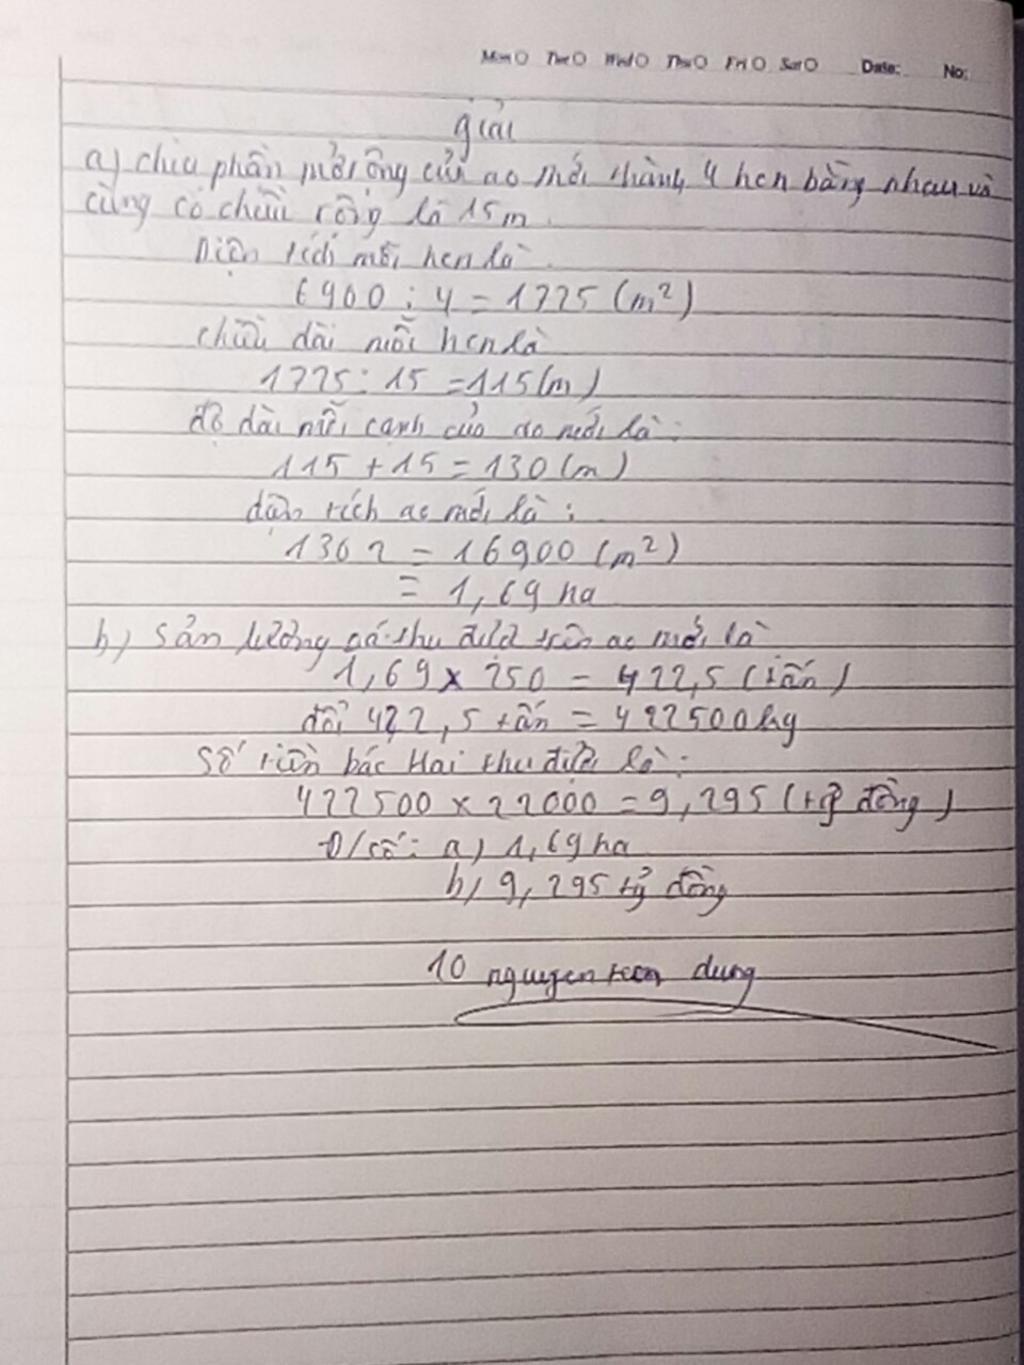 Mon Tue Wed Thu Fri Sat Date: No:
giải
a) chia phần mở rộng của ao mới thành 4 hcn bằng nhau và
cùng có chiều rộng là 15m.
Diện tích mỗi hcn là
6900 : 4 = 1725 (m²)
chiều dài mỗi hcn là
1725 : 15 = 115 (m)
độ dài mỗi cạnh của ao mới là:
115 + 15 = 130 (m)
diện tích ao mới là:
130² = 16900 (m²)
= 1,69 ha
b) Sản lượng cá thu được trên ao mới là
1,69 × 250 = 422,5 (tấn)
đổi 422,5 tấn = 422500 kg
Số tiền bác Hai thu được là:
422500 × 22000 = 9,295 (tỷ đồng)
Đ/số: a) 1,69 ha
b) 9,295 tỷ đồng
10 nguyen dung